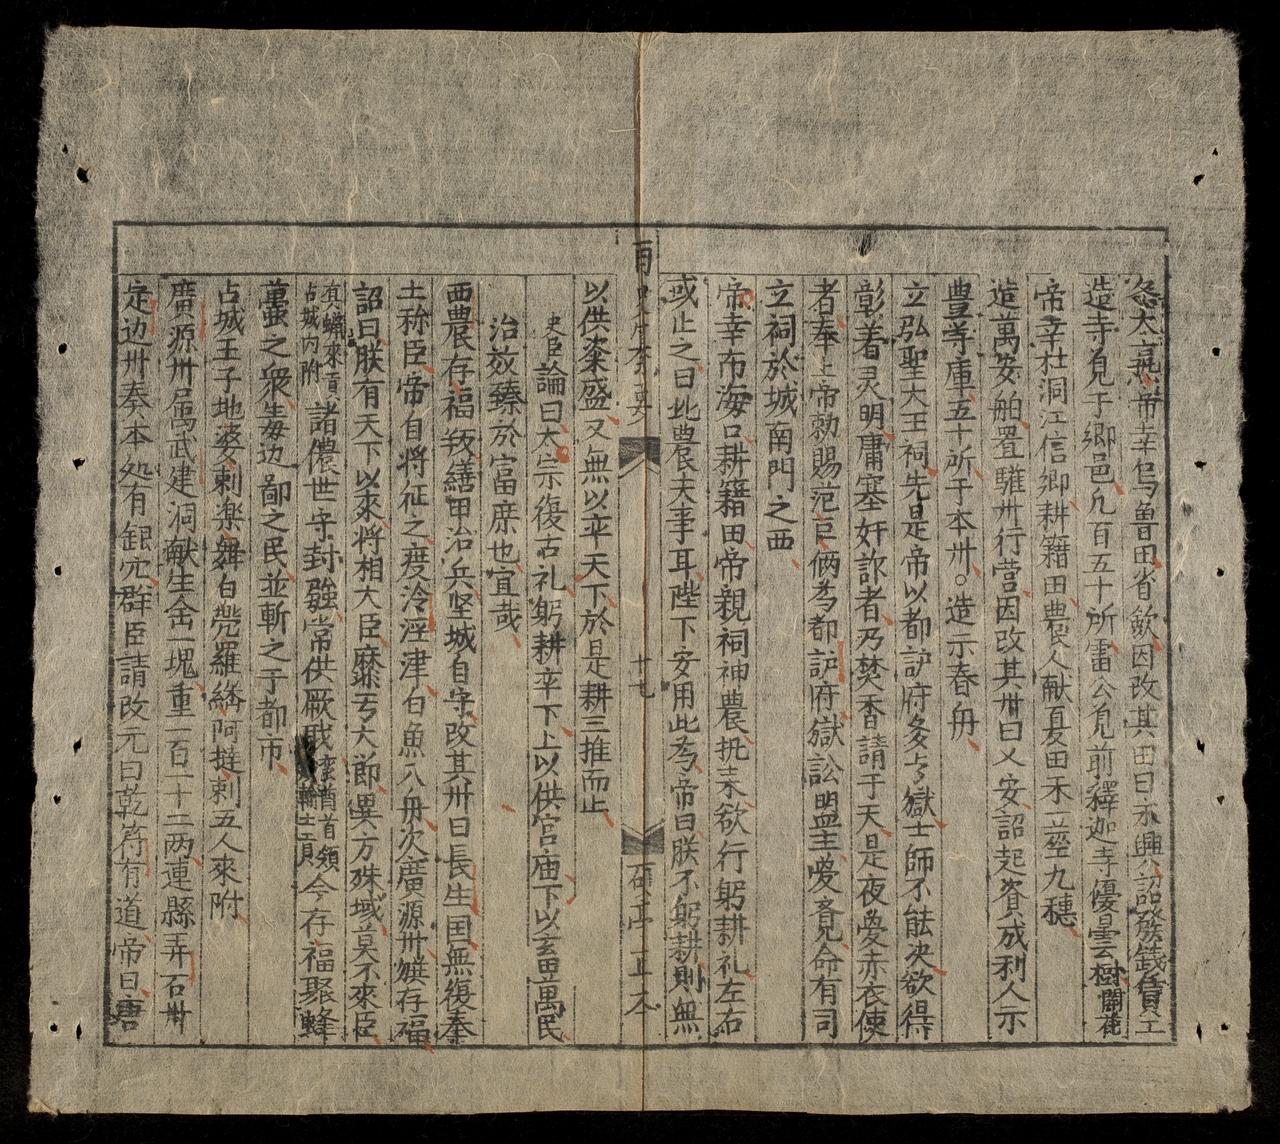 忩大熟帝幸烏魯田省歛因改其田曰永興詔發錢賃工
造寺覌于鄉邑凢百五十所雷公覌前釋迦寺優曇樹開花
帝幸杜洞江信鄉耕籍田農人献夏田禾一莖九穗
造萬安舶置驩卅行营因改其卅曰乂安詔起資成利人示
豊等庫五十所于本卅○造示春舟
立弘聖大王祠先是帝以都護府多亏獄士師不能决欲得
彰着灵明庸塞奸詐者乃焚香請于天是夜夢赤衣使
者奉上帝勑賜范巨俩為都護府獄訟盟主夢覔見命有司
立祠於城南門之西
帝幸布海口耕籍田帝親祠神農执耒欲行躬耕礼左右
或止之曰此農夫事耳陛下安用此為帝曰朕不躬耕則無
十七
以供粢盛又無以率天下於是耕三推而止
史臣論曰太宗復古礼躬耕率下上以供宫庙下以玄畏萬民
治效臻於富庶也宜哉
西農存福叛繕甲治兵坚城自守改其卅曰長生国無復奉
土称臣帝自將征之庋泠泾津白魚入舟次廣源卅旗存福
詔曰朕有天下以來將相大臣靡亏大節異方殊域莫不來臣
真蠟來貢占城内附諸儂世守封疆常供厥賊蛮酋首領今存福聚蜂
蠆之衆毒边鄙之民並斬之于都市
占城王子地婆剌楽舞白凳羅繙阿撻剌五人來附
廣源卅属武建洞献生金一塊重一百一十二两連縣弄石卅
定边卅奏本処有銀穴群臣請改元曰乾符有道帝曰唐